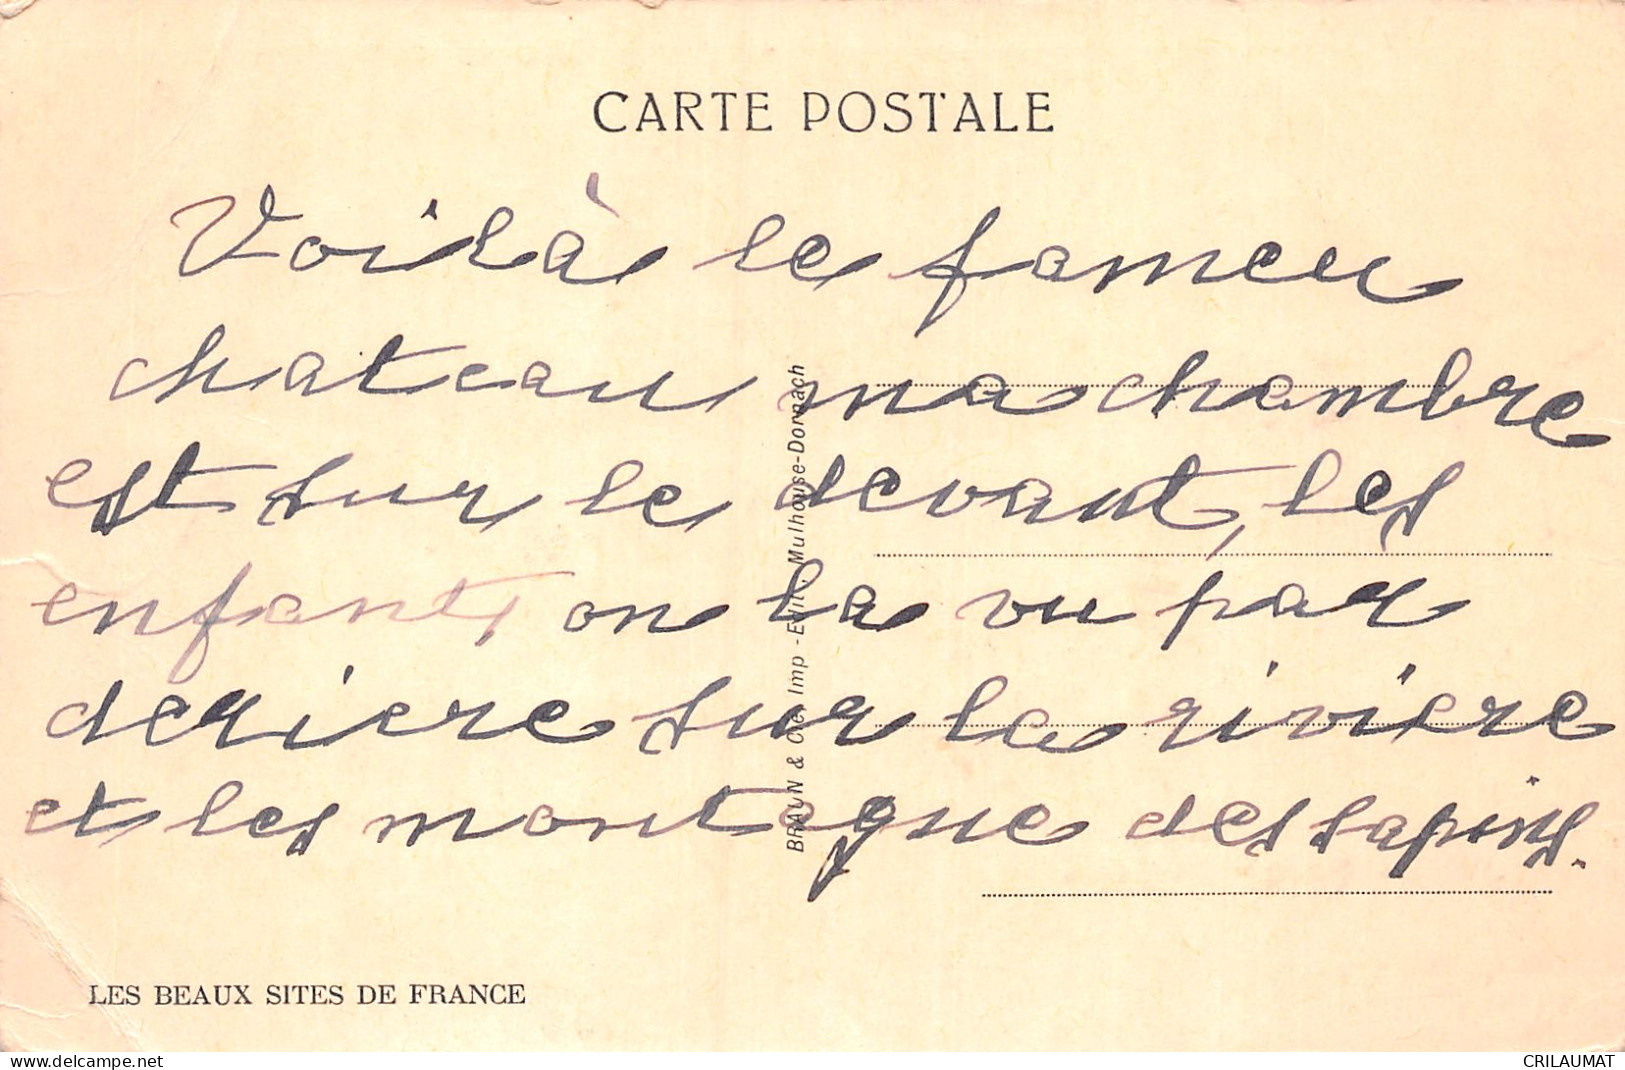 CARTE POSTALE
Voilà le fameu
chateau ma chambre
est sur le devant, les
enfants on la vu par
deriere sur la riviere
et les montague des sapins.
BRAUN & Cie, Imp - Edit. Mulhouse-Dornach
LES BEAUX SITES DE FRANCE
www.delcampe.net
CRILAUMAT